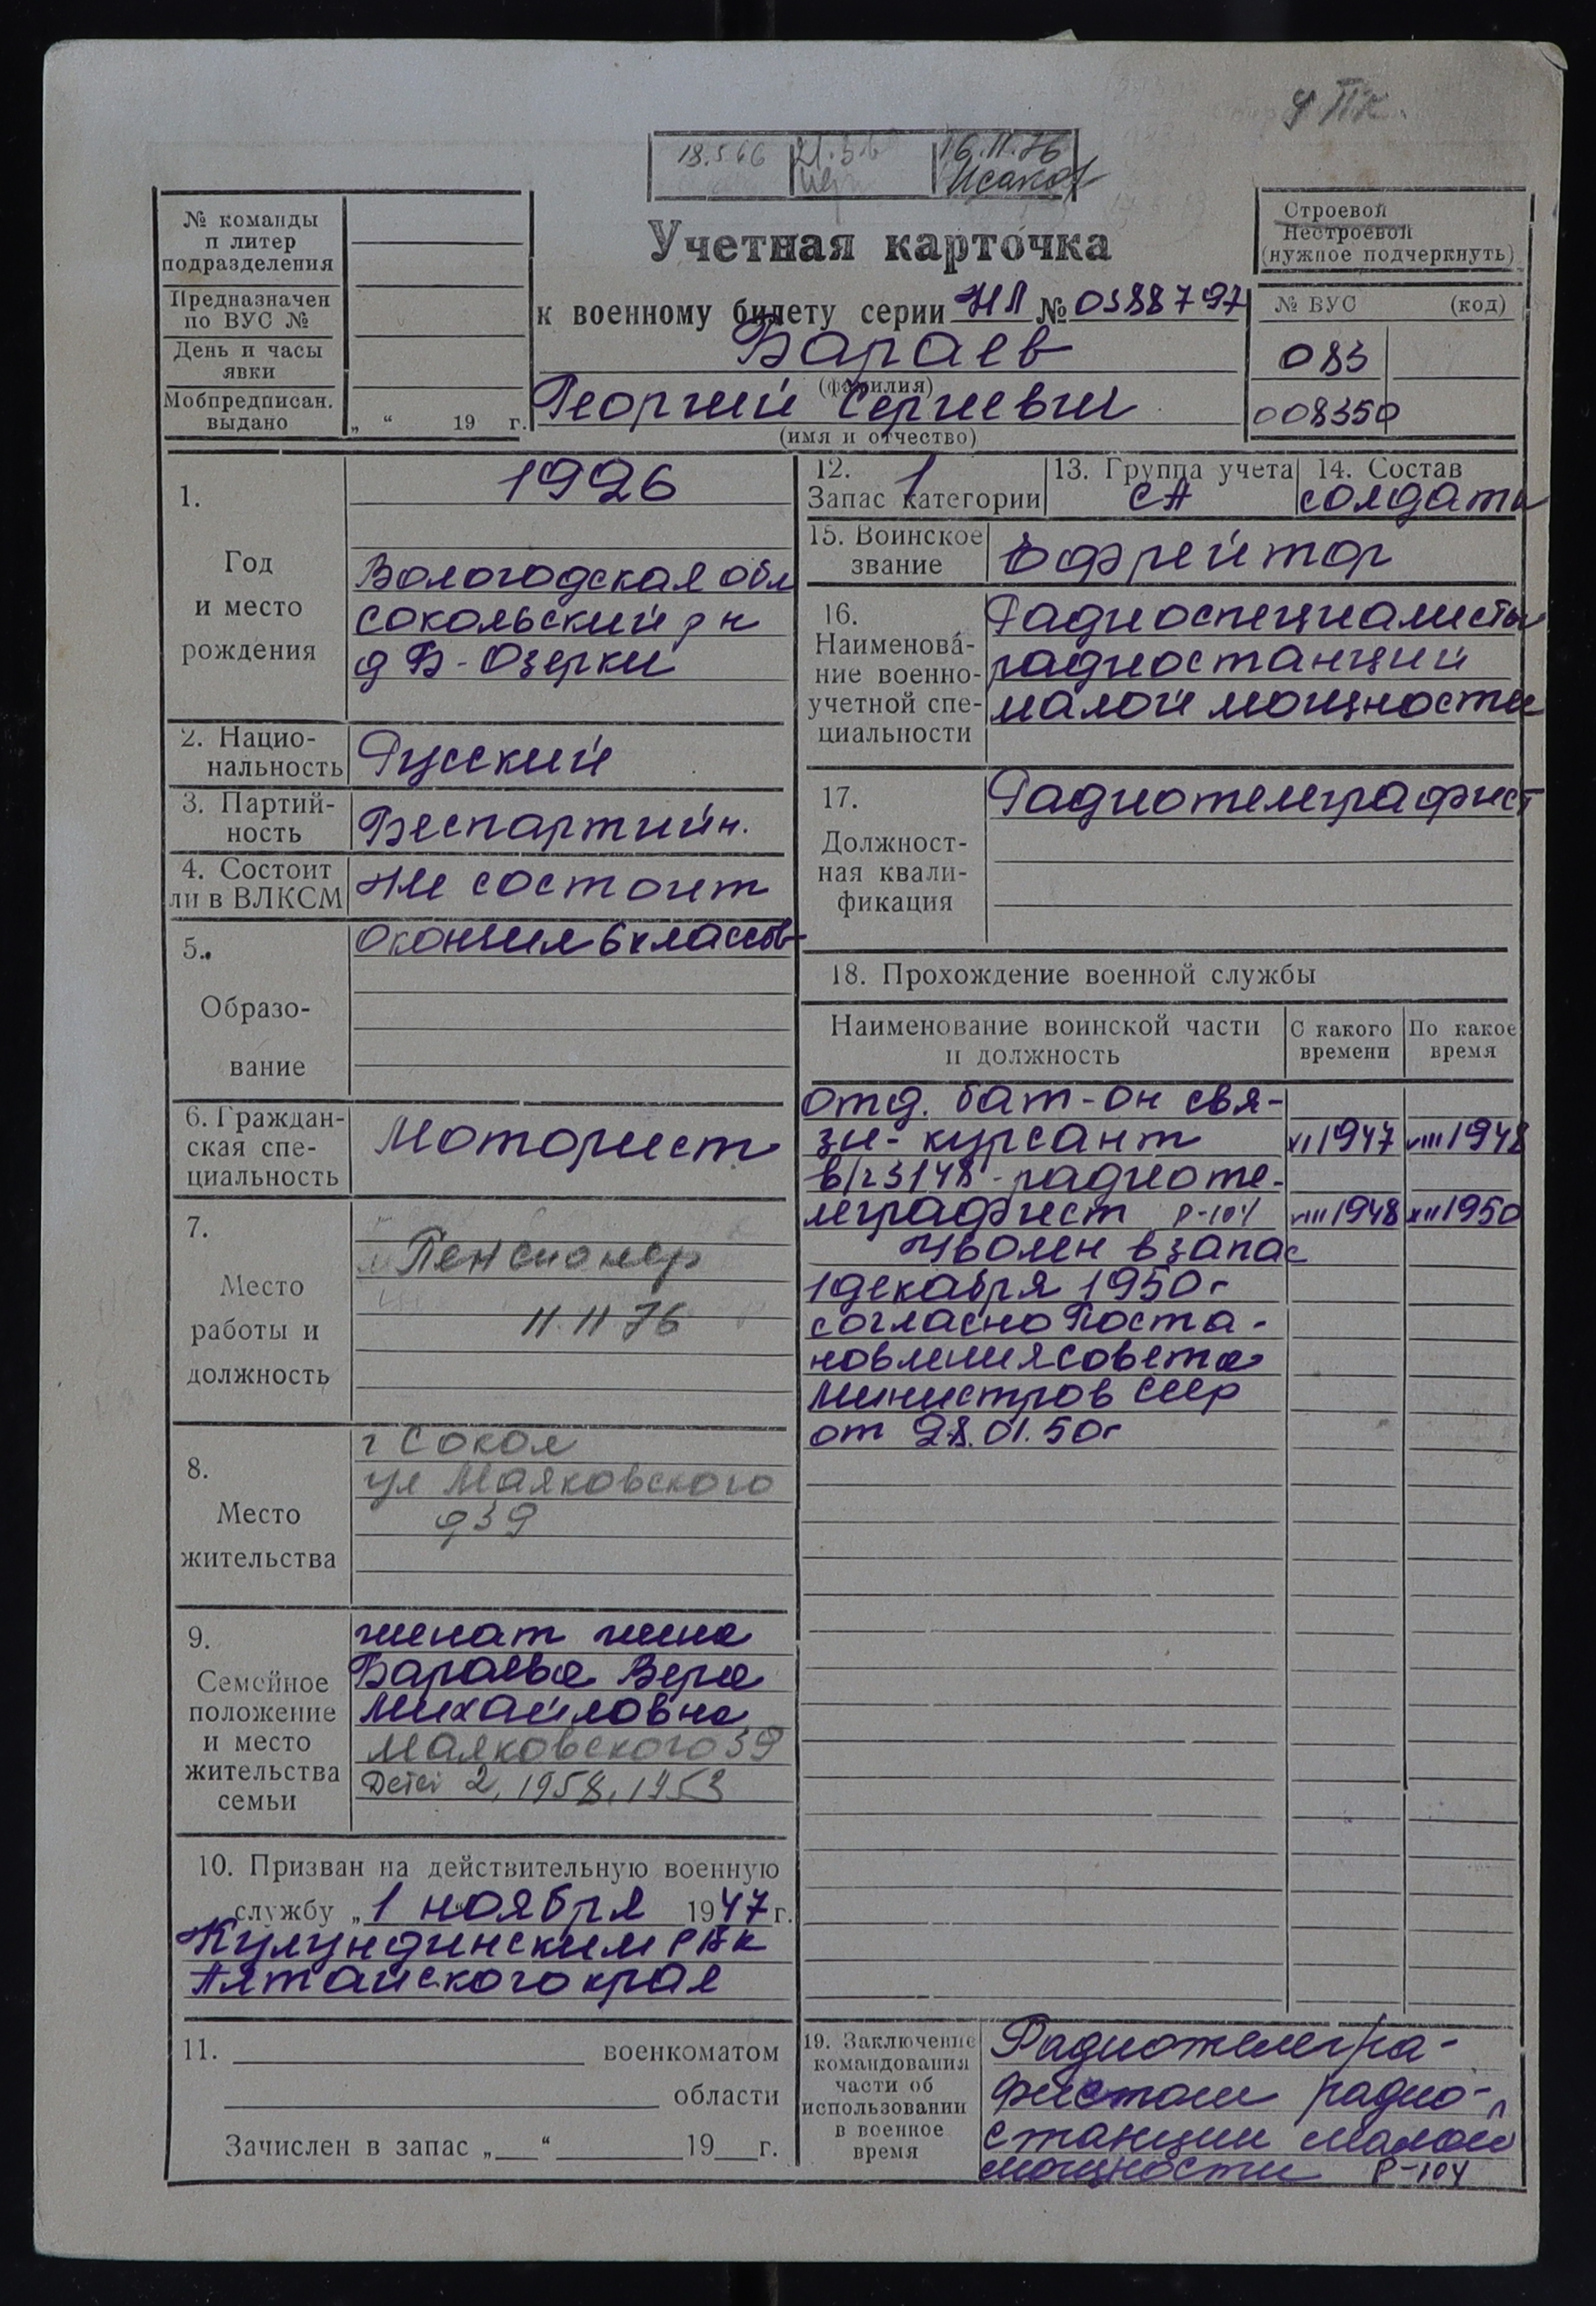 У ПК.
18.5.66
16.11.76
Исаков
№ команды
и литер
подразделения
Предназначен
по ВУС №
День и часы
явки
Мобпредписан.
выдано
„ “ 19 г.
Учетная карточка
к военному билету серии НЛ № 0388797
Бараев
(фамилия)
Георгий Сергиевич
(имя и отчество)
Строевой
Нестроевой
(нужное подчеркнуть)
№ ВУС (код)
083
008350
1.
Год
и место
рождения
1926
Вологодская обл
Сокольский р н
д Б-Озерки
2. Нацио-
нальность
Русский
3. Партий-
ность
Беспартийн.
4. Состоит
ли в ВЛКСМ
Не состоит
5.
Образо-
вание
Окончил 6 классов
6. Граждан-
ская спе-
циальность
Моторист
7.
Место
работы и
должность
Пенсионер
11.11 76
8.
Место
жительства
г Сокол
ул Маяковского
д 39
9.
Семейное
положение
и место
жительства
семьи
женат жена
Бараева Вера
Михайловна
Маяковского 39
Детей 2, 1958, 1953
10. Призван на действительную военную
службу „ 1 ноября 1947 г.
Кулундинским РВК
Алтайского края
11. военкоматом
области
Зачислен в запас „ “ 19 г.
12. 1
Запас категории
13. Группа учета
СА
14. Состав
солдаты
15. Воинское
звание
Ефрейтор
16.
Наименова-
ние военно-
учетной спе-
циальности
Радиоспециалисты
радиостанций
малой мощности
17.
Должност-
ная квали-
фикация
Радиотелеграфист
18. Прохождение военной службы
Наименование воинской части
и должность
С какого
времени
По какое
время
отд. бат-он свя-
зи- курсант XI 1947 VIII 1948
в/ч 3148 - радиоте-
леграфист Р-104 VIII 1948 XII 1950
Уволен в запас
1 декабря 1950 г
согласно Поста-
новления совета
Министров СССР
от 28.01.50г
19. Заключение
командования
части об
использовании
в военное
время
Радиотелегра-
фистом радио-
станции малой
мощности Р-104